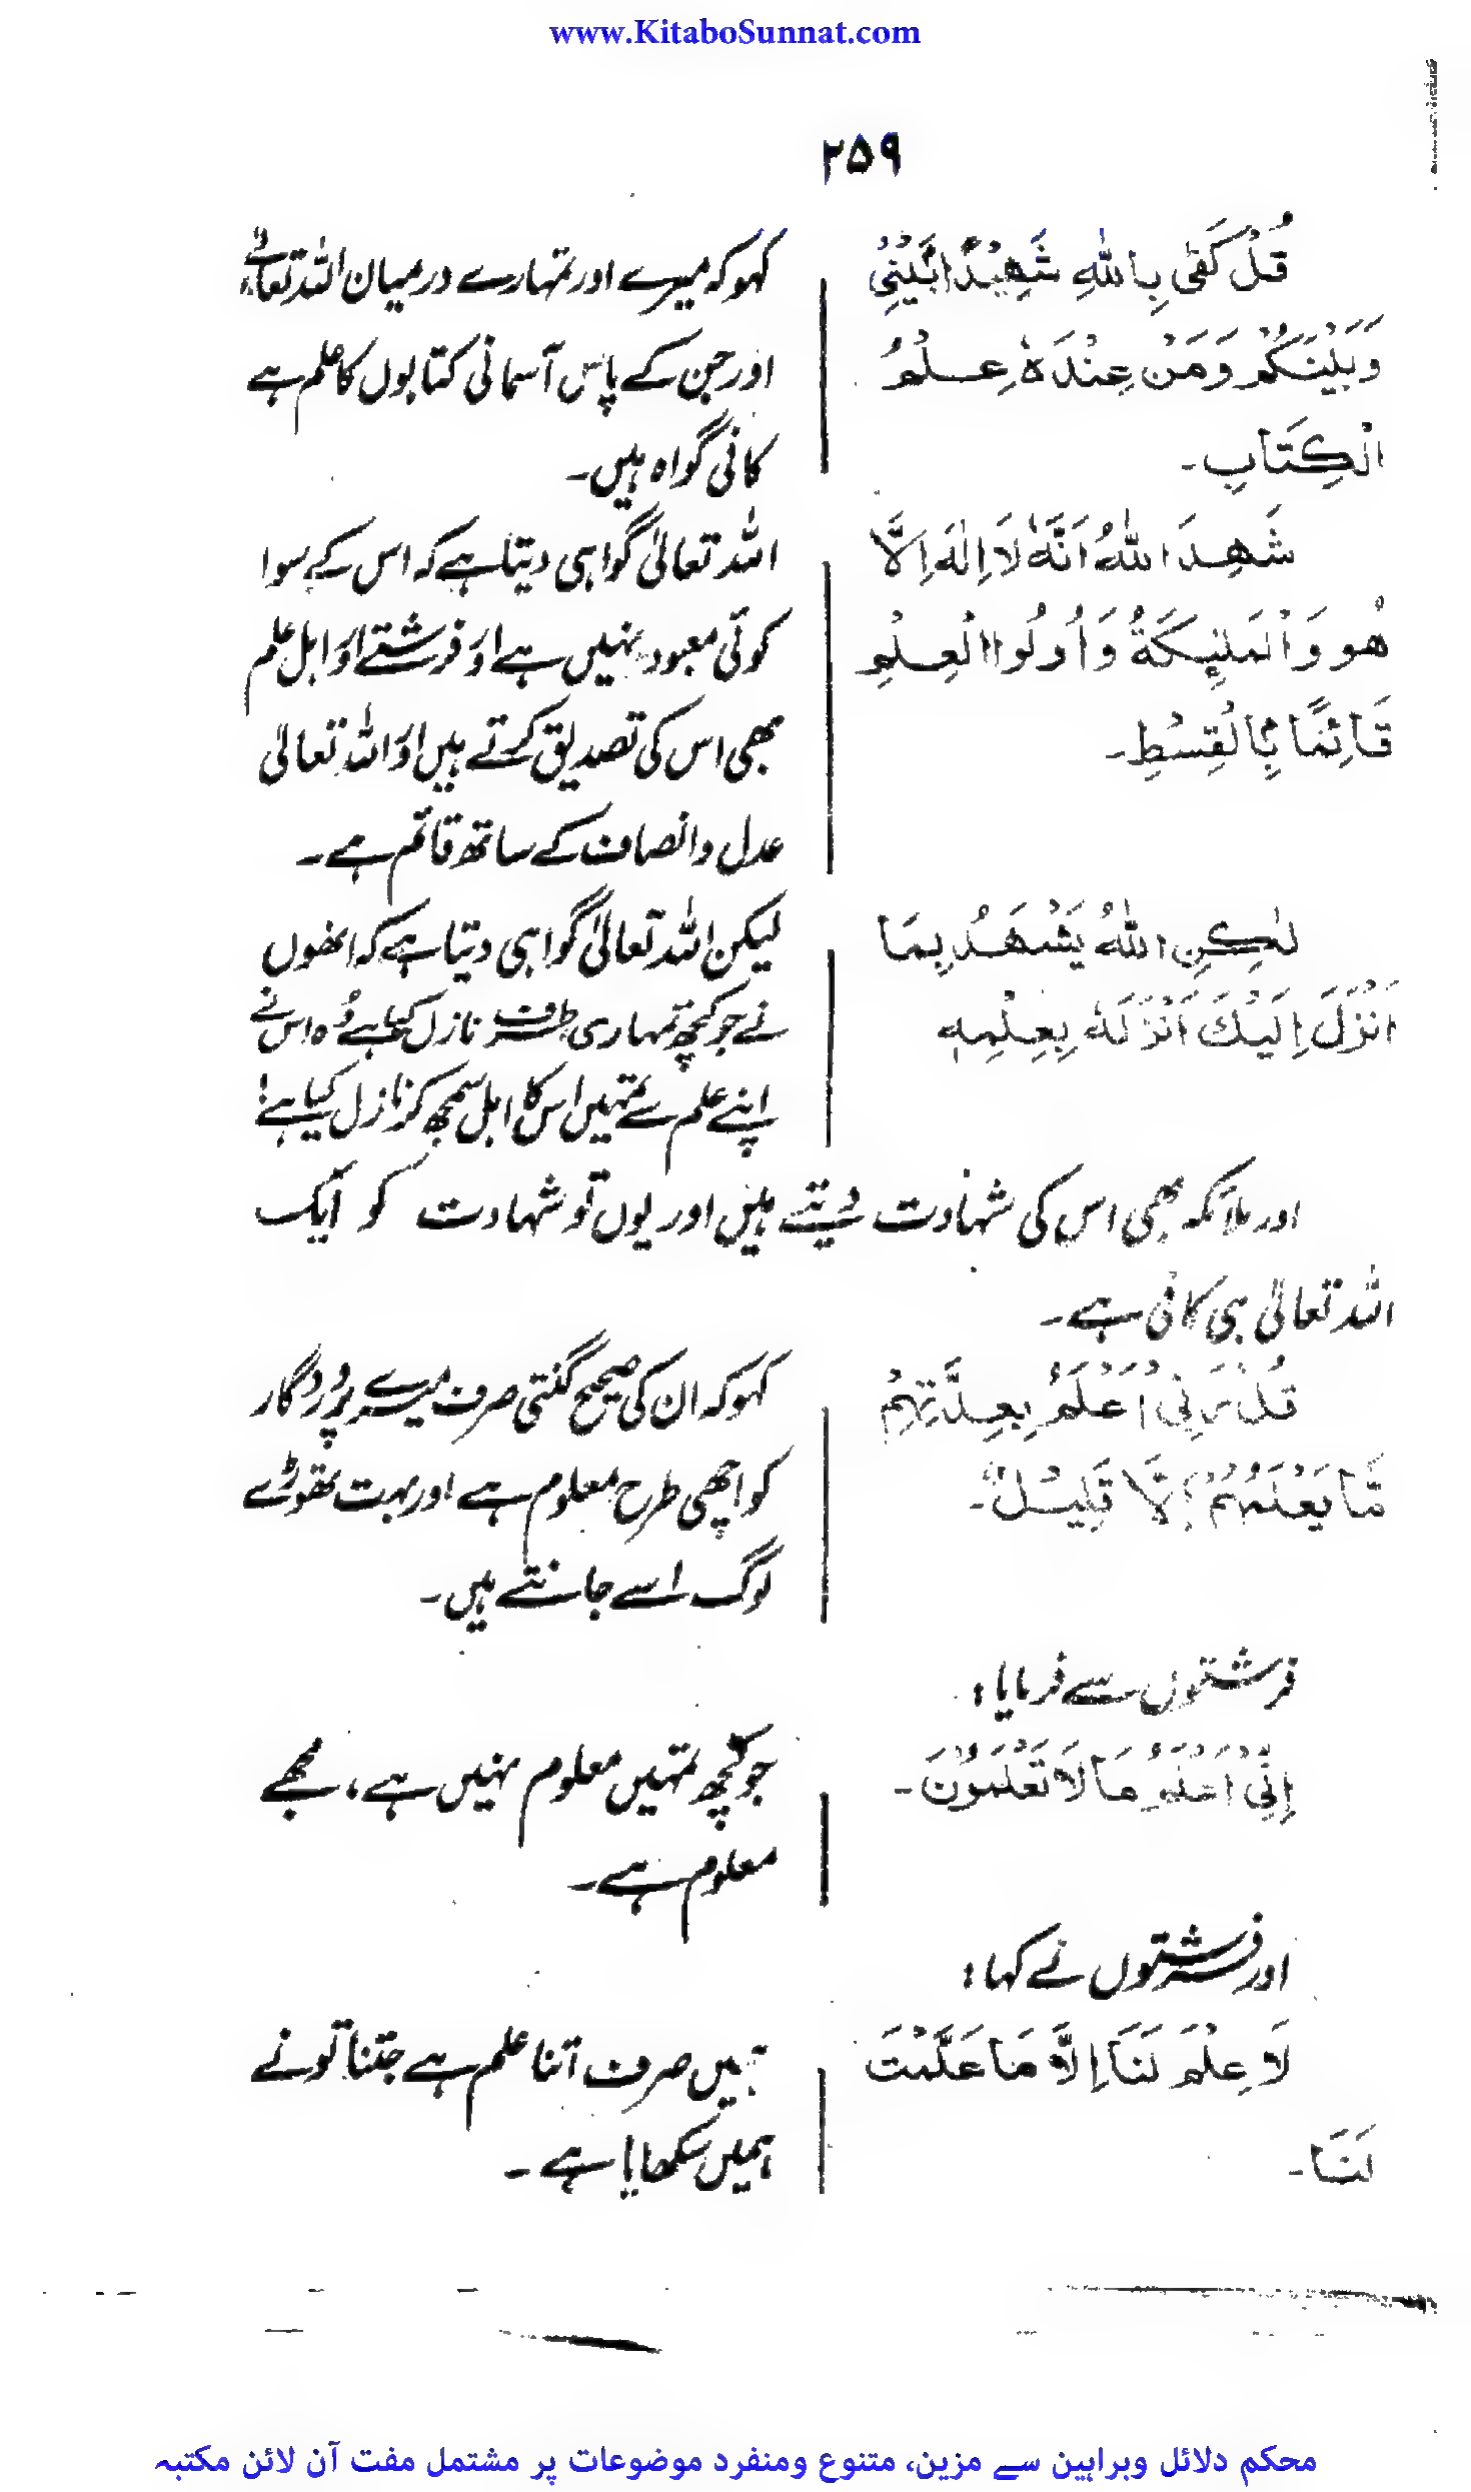 www.KitaboSunnat.com
۲۵۹
قُلْ كَفٰى بِاللّٰهِ شَهِيْدًا بَيْنِيْ
وَبَيْنَكُمْ وَمَنْ عِنْدَهٗ عِلْمُ
الْكِتَابِ۔
کہو کہ میرے اور تمہارے درمیان اللہ تعالےٰ
اور جن کے پاس آسمانی کتابوں کا علم ہے
کافی گواہ ہیں۔
شَهِدَ اللّٰهُ اَنَّهٗ لَا اِلٰهَ اِلَّا
هُو وَالْمَلٰٓئِكَةُ وَاُولُوا الْعِلْمِ
قَآئِمًا بِالْقِسْطِ۔
اللہ تعالیٰ گواہی دیتا ہے کہ اس کے سوا
کوئی معبود نہیں ہے اور فرشتے اور اہل علم
بھی اس کی تصدیق کرتے ہیں اور اللہ تعالیٰ
عدل و انصاف کے ساتھ قائم ہے۔
لٰكِنِ اللّٰهُ يَشْهَدُ بِمَا
اَنْزَلَ اِلَيْكَ اَنْزَلَهٗ بِعِلْمِهٖ
لیکن اللہ تعالیٰ گواہی دیتا ہے کہ انھوں
نے جو کچھ تمہاری طرف نازل کیا ہے وُہ اس نے
اپنے علم سے تمہیں اس کا اہل سمجھ کر نازل کیا ہے!
اور ملائکہ بھی اس کی شہادت دیتے ہیں اور یوں تو شہادت کو ایک
اللہ تعالیٰ ہی کافی ہے۔
قُلْ رَبِّيْ اَعْلَمُ بِعِدَّتِهِمْ
مَّا يَعْلَمُهُمْ اِلَّا قَلِيْلٌ۔
کہو کہ ان کی صحیح گنتی صرف میرے پروردگار
کو اچھی طرح معلوم ہے اور بہت تھوڑے
لوگ اسے جانتے ہیں۔
فرشتوں سے فرمایا:
اِنِّيْ اَعْلَمُ مَا لَا تَعْلَمُوْنَ۔
جو کچھ تمہیں معلوم نہیں ہے، مجھے
معلوم ہے۔
اور فرشتوں نے کہا:
لَا عِلْمَ لَنَا اِلَّا مَا عَلَّمْتَ
لَنَا۔
ہمیں صرف اتنا علم ہے جتنا تو نے
ہمیں سکھایا ہے۔
محکم دلائل وبراہین سے مزین، متنوع ومنفرد موضوعات پر مشتمل مفت آن لائن مکتبہ